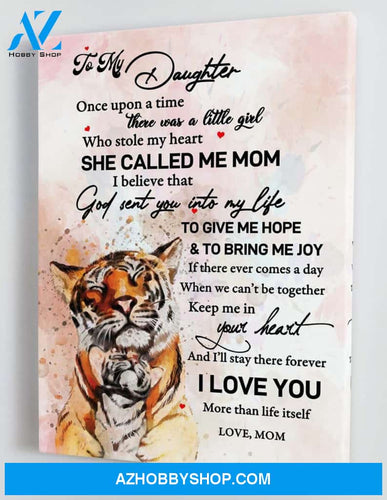 AZ
HOBBY SHOP
To My Daughter
Once upon a time
there was a little girl
Who stole my heart
SHE CALLED ME MOM
I believe that
God sent you into my life
TO GIVE ME HOPE
& TO BRING ME JOY
If there ever comes a day
When we can't be together
Keep me in
your heart
And I'll stay there forever
I LOVE YOU
More than life itself
LOVE, MOM
AZHOBBYSHOP.COM